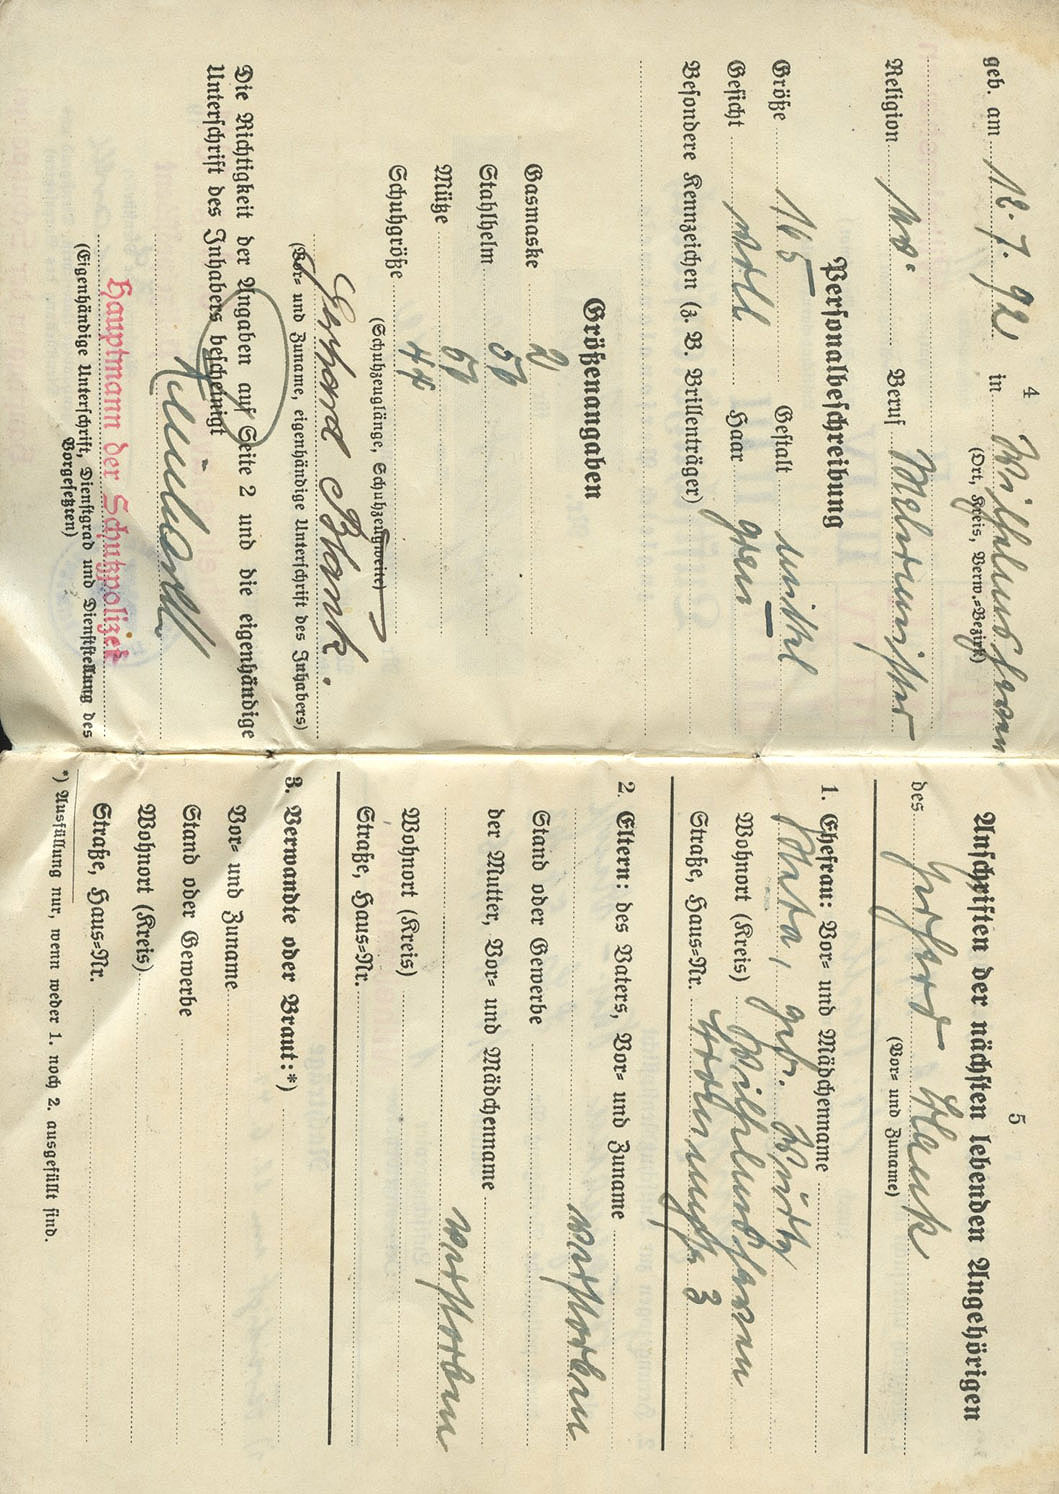 4
geb. am 12. 7. 92. in Wilhelmshaven
(Ort, Kreis, Verw.=Bezirk)
Religion ev. Beruf Malermeister
Personalbeschreibung
Größe 165 Gestalt mittel
Gesicht voll Haar grau
Besondere Kennzeichen (z. B. Brillenträger)
Größenangaben
Gasmaske 2
Stahlhelm 56
Mütze 56
Schuhgröße 44
(Schuhzeuglänge, Schuhzeugweite)
Gerhard Blank.
(Vor= und Zuname, eigenhändige Unterschrift des Inhabers)
Die Richtigkeit der Angaben auf Seite 2 und die eigenhändige
Unterschrift des Inhabers bescheinigt
Hauptmann der Schutzpolizei
(Eigenhändige Unterschrift, Dienstgrad und Dienststellung des
Vorgesetzten)
5
Anschriften der nächsten lebenden Angehörigen
des Gerhard Blank
(Vor= und Zuname)
1. Ehefrau: Vor= und Mädchenname
geb.
Wohnort (Kreis) Wilhelmshaven
Straße, Haus=Nr. 3
2. Eltern: des Vaters, Vor= und Zuname
verstorben
Stand oder Gewerbe
der Mutter, Vor= und Mädchenname
verstorben
Wohnort (Kreis)
Straße, Haus=Nr.
3. Verwandte oder Braut:*)
Vor= und Zuname
Stand oder Gewerbe
Wohnort (Kreis)
Straße, Haus=Nr.
*) Ausfüllung nur, wenn weder 1. noch 2. ausgefüllt sind.